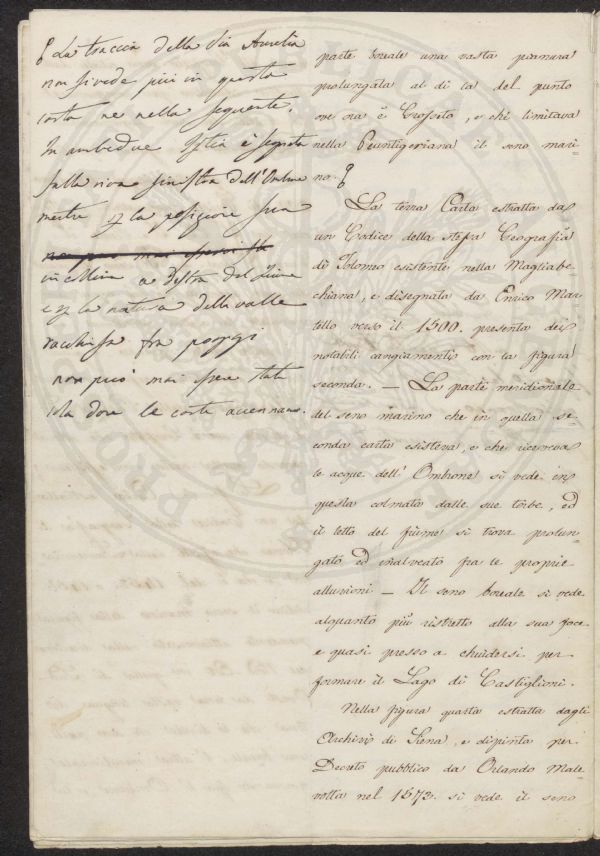 § La traccia della Via Aurelia
non si vede più in questa
carta ne nella seguente.
In ambedue Istia è segnata
sulla riva sinistra dell'Ombrone
mentre la posizione sua
in collina a destra del fiume
e la natura della valle
racchiusa fra poggi
non può mai essere stata
là dove le carte accennano.
parte boreale una vasta pianura
prolungata al di là del punto
ove ora è Grosseto, e chi limitava
nella Peuntigeriana il seno mari-
no. §
La terza Carta estratta da
un Codice della stessa Geografia
di Tolomeo esistente nella Magliabe-
chiana, e disegnata da Enrico Mar-
tello verso il 1500. presenta dei
notabili cangiamenti con la figura
seconda. — La parte meridionale
del seno marino che in quella se-
conda carta esisteva, e che riceveva
le acque dell' Ombrone si vede in
questa colmata dalle sue torbe, ed
il letto del fiume si trova prolun-
gato ed inalveato fra le proprie
alluvioni — Il seno boreale si vede
alquanto più ristretto alla sua foce
e quasi presso a chiudersi per
formare il Lago di Castiglioni.
Nella figura quarta estratta dagli
Archivi di Siena, e dipinta per
Decreto pubblico da Orlando Male-
volta nel 1573. si vede il seno